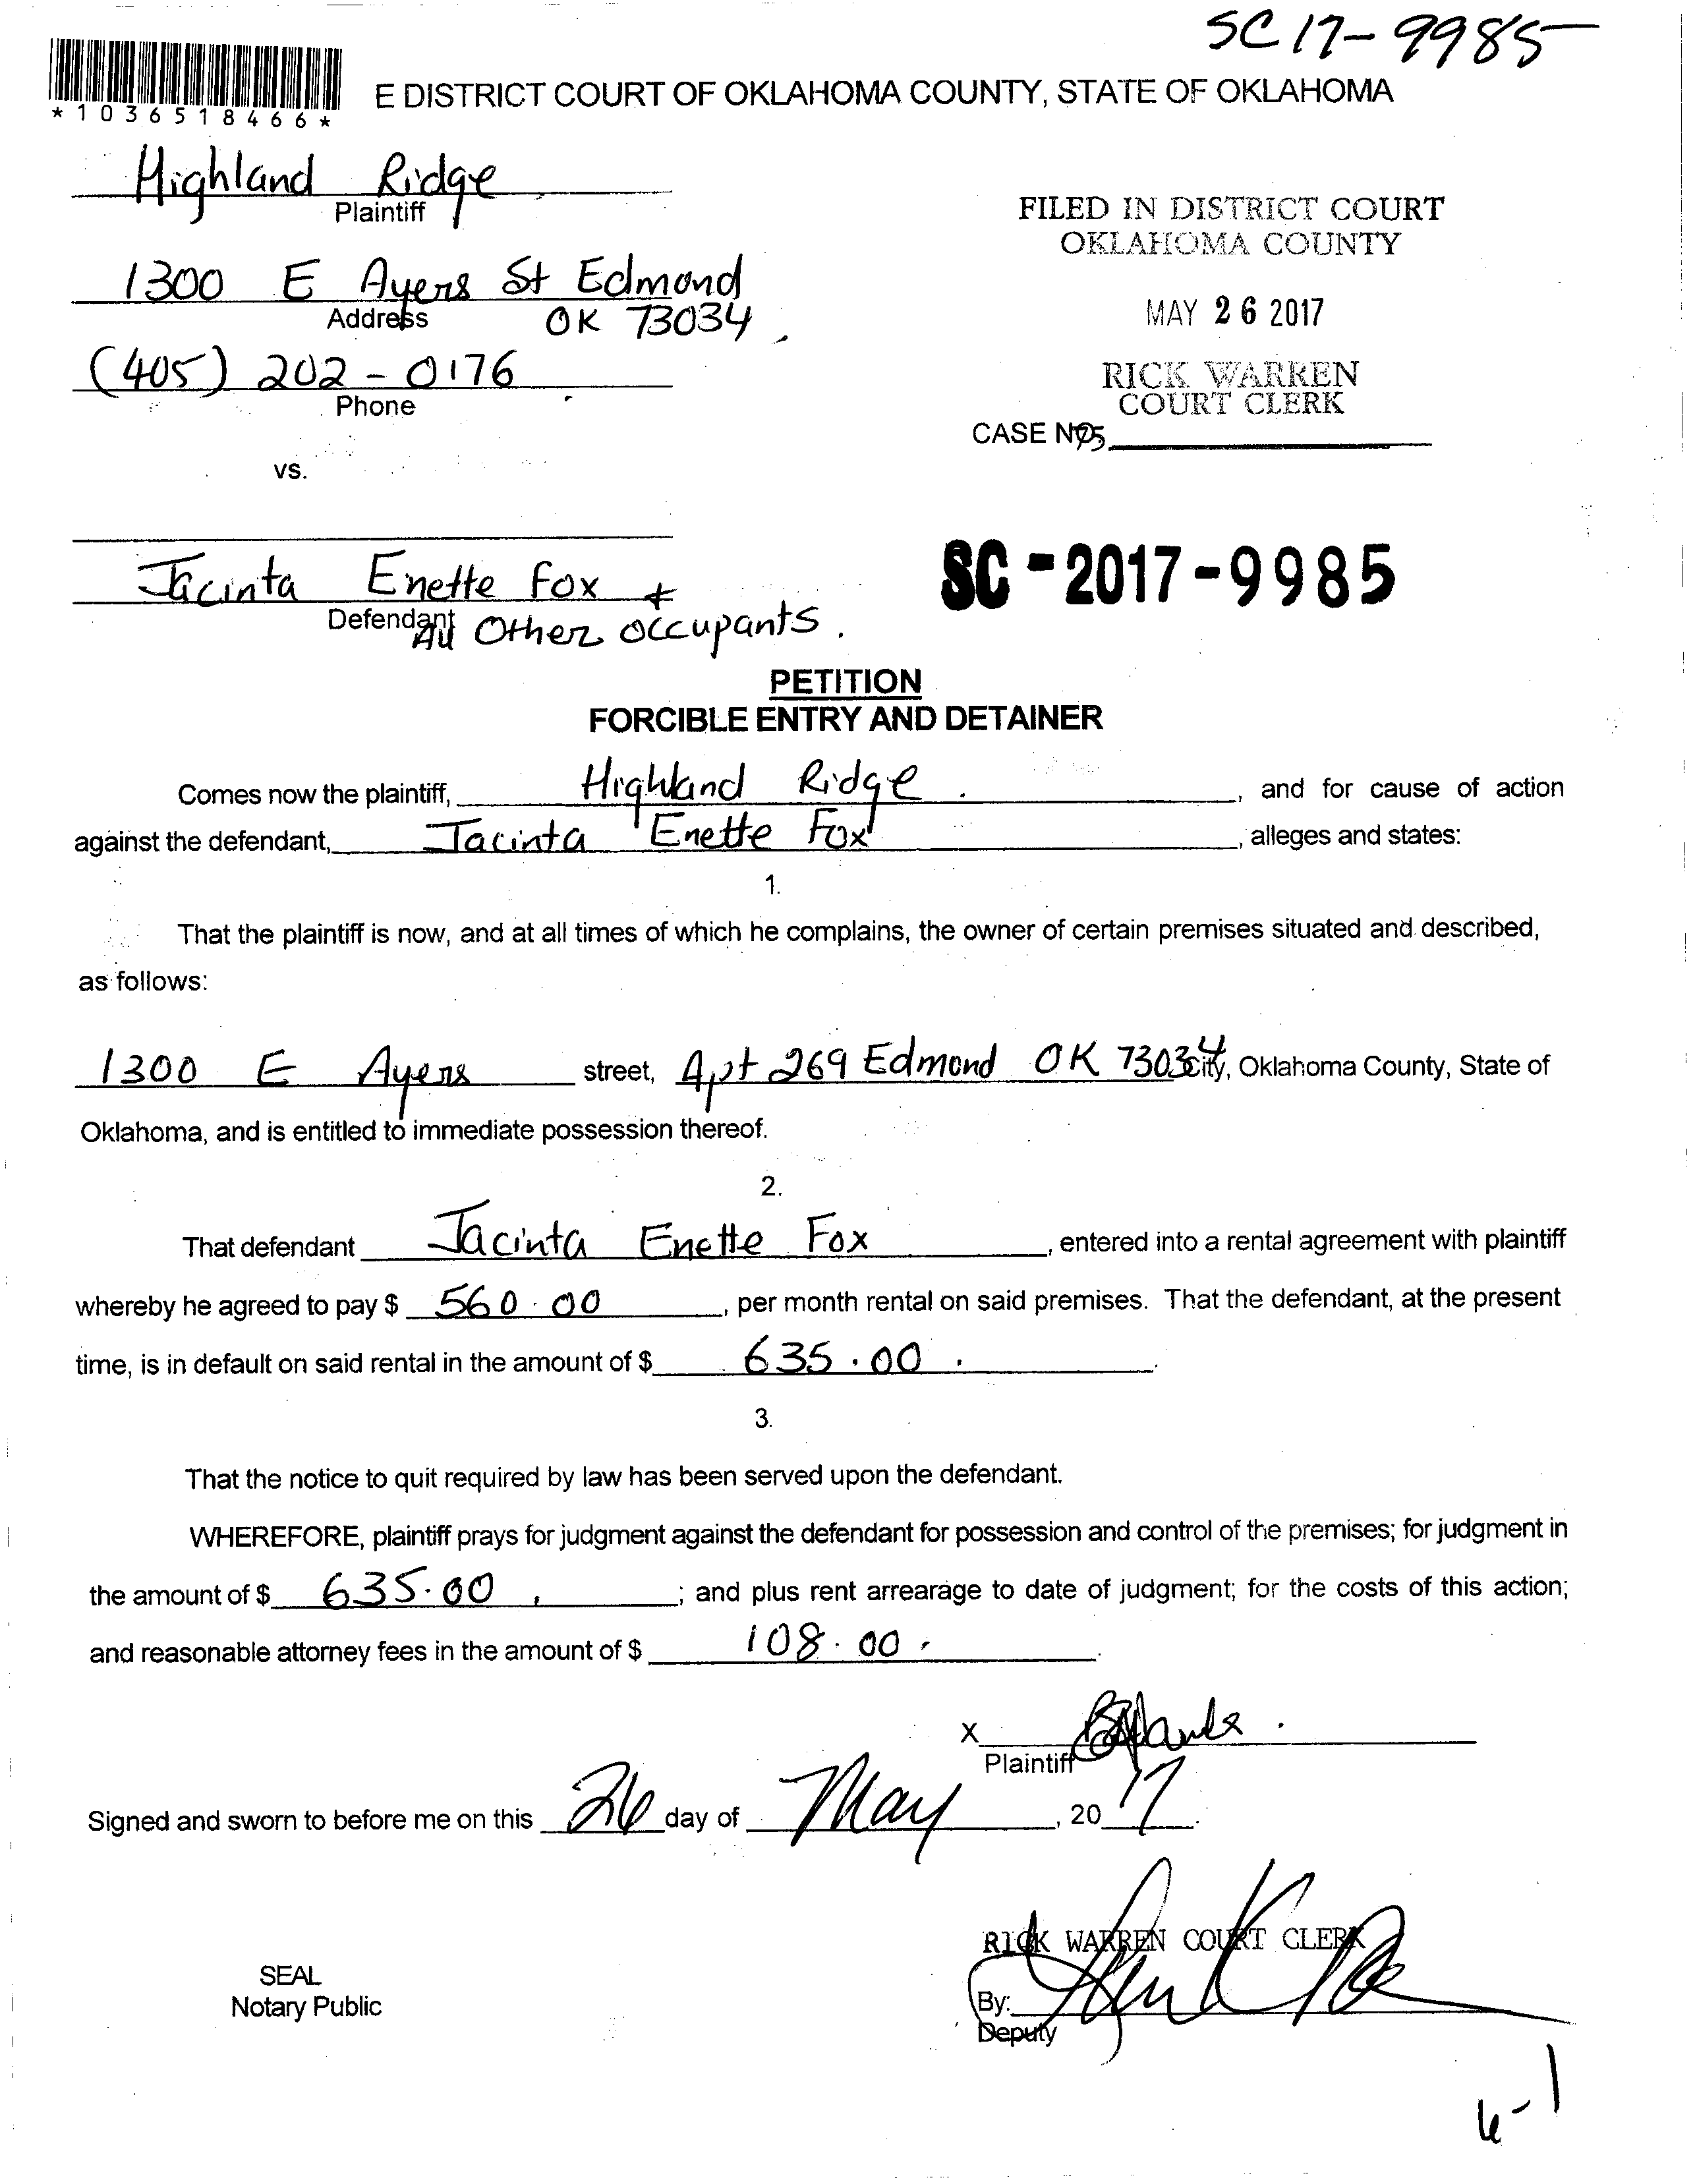 SC 17-9985
*1036518466*
E DISTRICT COURT OF OKLAHOMA COUNTY, STATE OF OKLAHOMA
Highland Ridge
Plaintiff
FILED IN DISTRICT COURT
OKLAHOMA COUNTY
1300 E Ayers St Edmond
Address OK 73034
MAY 26 2017
(405) 202-0176
Phone
RICK WARREN
COURT CLERK
CASE NO.
75
vs.
SC-2017-9985
Jacinta Enette Fox +
Defendant All Other occupants.
PETITION
FORCIBLE ENTRY AND DETAINER
Comes now the plaintiff, Highland Ridge. , and for cause of action
against the defendant, Jacinta Enette Fox , alleges and states:
1.
That the plaintiff is now, and at all times of which he complains, the owner of certain premises situated and described,
as follows:
1300 E Ayers street, Apt 269 Edmond OK 73034 city, Oklahoma County, State of
Oklahoma, and is entitled to immediate possession thereof.
2.
That defendant Jacinta Enette Fox , entered into a rental agreement with plaintiff
whereby he agreed to pay $ 560.00 , per month rental on said premises. That the defendant, at the present
time, is in default on said rental in the amount of $ 635.00 .
3.
That the notice to quit required by law has been served upon the defendant.
WHEREFORE, plaintiff prays for judgment against the defendant for possession and control of the premises; for judgment in
the amount of $ 635.00 ; and plus rent arrearage to date of judgment; for the costs of this action;
and reasonable attorney fees in the amount of $ 108.00 .
X
Plaintiff
Signed and sworn to before me on this 26 day of May , 2017.
RICK WARREN COURT CLERK
SEAL
Notary Public
By:
Deputy
6-1